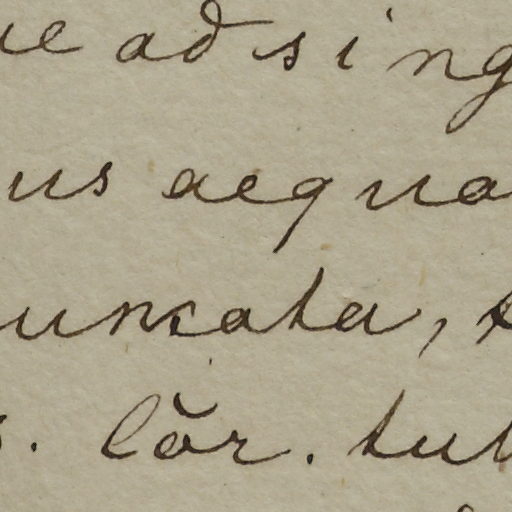 ue ad sing
us aequa
uncata, t
s. cŏr. tub